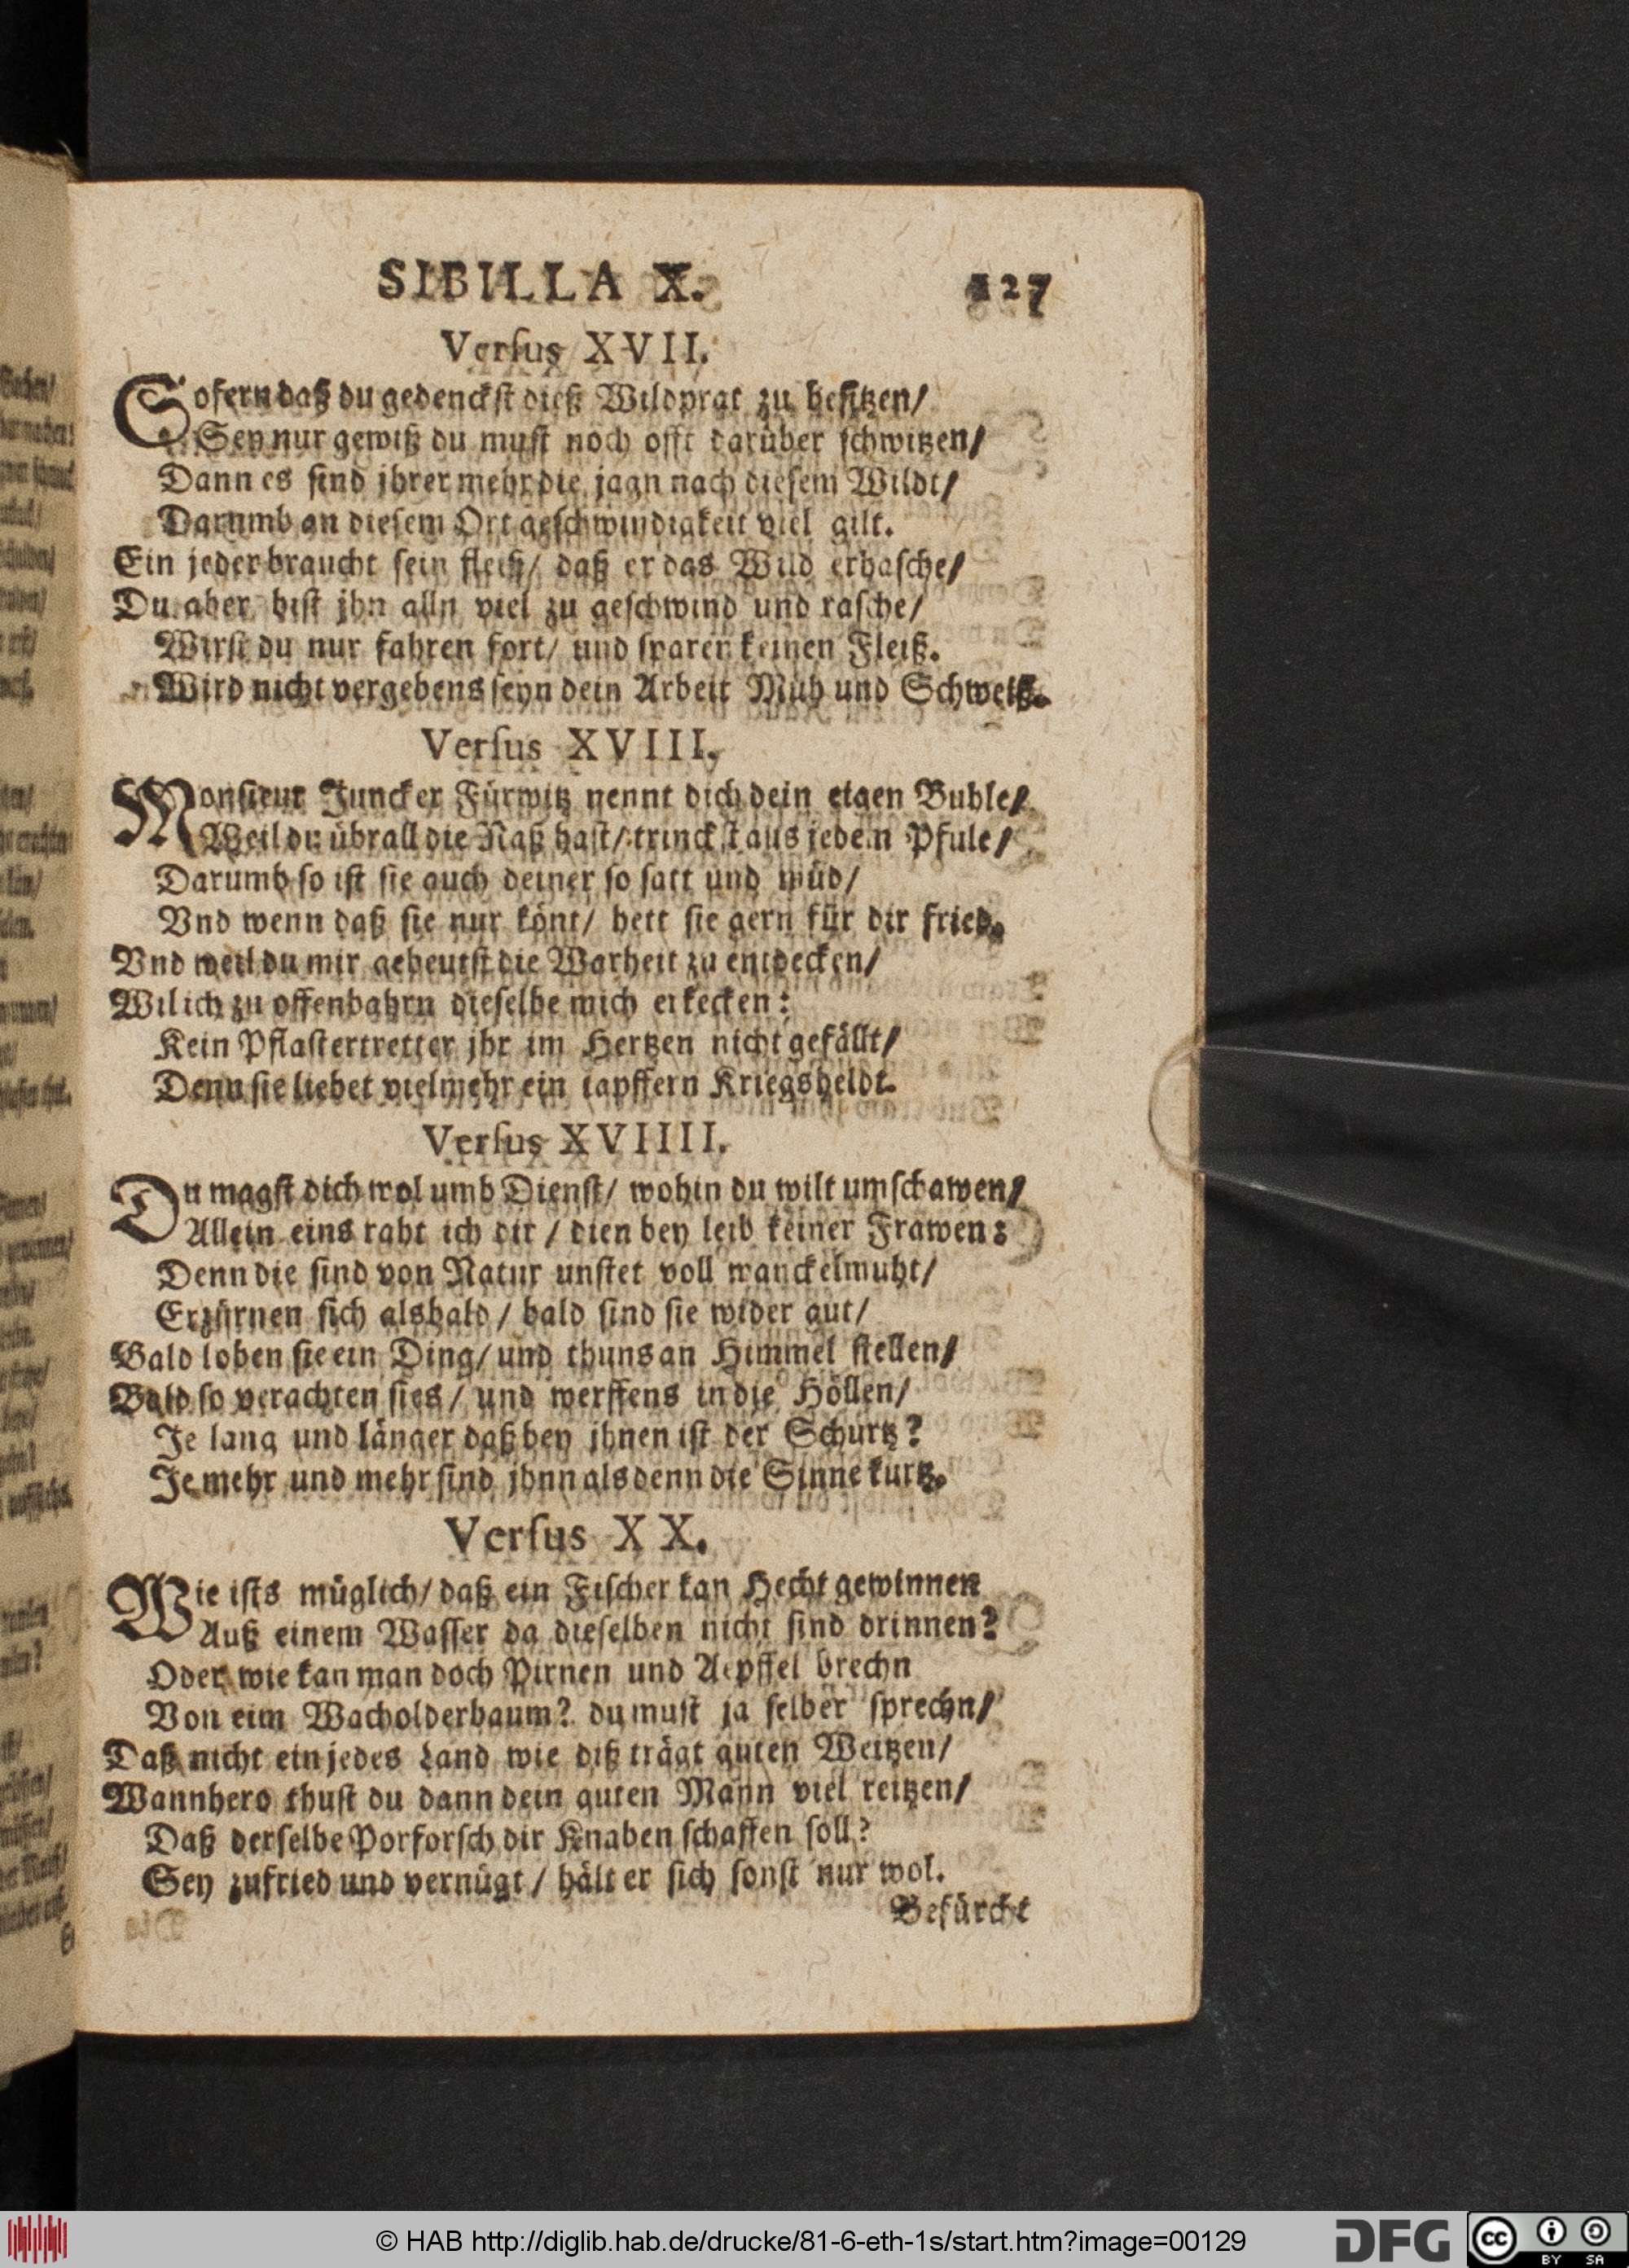 SIBILLA X. 127
Versus XVII.
Sofern daß du gedenckst dieß Wildprat zu besitzen/
Sey nur gewiß du must noch offt darüber schwitzen/
Dann es sind jhrer mehr die jagn nach diesem Wildt/
Darumb an diesem Ort geschwindigkeit viel gilt.
Ein jeder braucht sein fleiß/ daß er das Wild erhasche/
Du aber bist jhn alln viel zu geschwind und rasche/
Wirst du nur fahren fort/ und sparen keinen Fleiß.
Wird nicht vergebens seyn dein Arbeit Müh und Schweiß.
Versus XVIII.
Monsieur Juncker Fürwitz nennt dich dein eigen Buhle/
Weil du übrall die Naß hast/ trinckst aus jedem Pfule/
Darumb so ist sie auch deiner so satt und müd/
Vnd wenn daß sie nur könt/ hett sie gern für dir fried.
Vnd weil du mir gebeutst die Warheit zu entdecken/
Wil ich zu offenbahrn dieselbe mich erkecken:
Kein Pflastertretter jhr im Hertzen nicht gefällt/
Denn sie liebet vielmehr ein tapffern Kriegsheldt.
Versus XVIIII.
Du magst dich wol umb Dienst/ wohin du wilt umschawen/
Allein eins raht ich dir / dien bey leib keiner Frawen:
Denn die sind von Natur unstet voll wanckelmuht/
Erzürnen sich alsbald / bald sind sie wider gut/
Bald loben sie ein Ding/ und thuns an Himmel stellen/
Bald so verachten sies / und werffens in die Höllen/
Je lang und länger daß bey jhnen ist der Schurtz?
Je mehr und mehr sind jhnn alsdenn die Sinne kurtz.
Versus XX.
Wie ists müglich/ daß ein Fischer kan Hecht gewinnen
Auß einem Wasser da dieselben nicht sind drinnen?
Oder wie kan man doch Pirnen und Aepffel brechn
Von eim Wacholderbaum? du must ja selber sprechn/
Daß nicht ein jedes Land wie diß trägt guten Weitzen/
Wannhero thust du dann dein guten Mann viel reitzen/
Daß derselbe Porforsch dir Knaben schaffen soll?
Sey zufried und vernügt / hält er sich sonst nur wol.
Befürcht
© HAB http://diglib.hab.de/drucke/81-6-eth-1s/start.htm?image=00129
DFG
cc BY SA